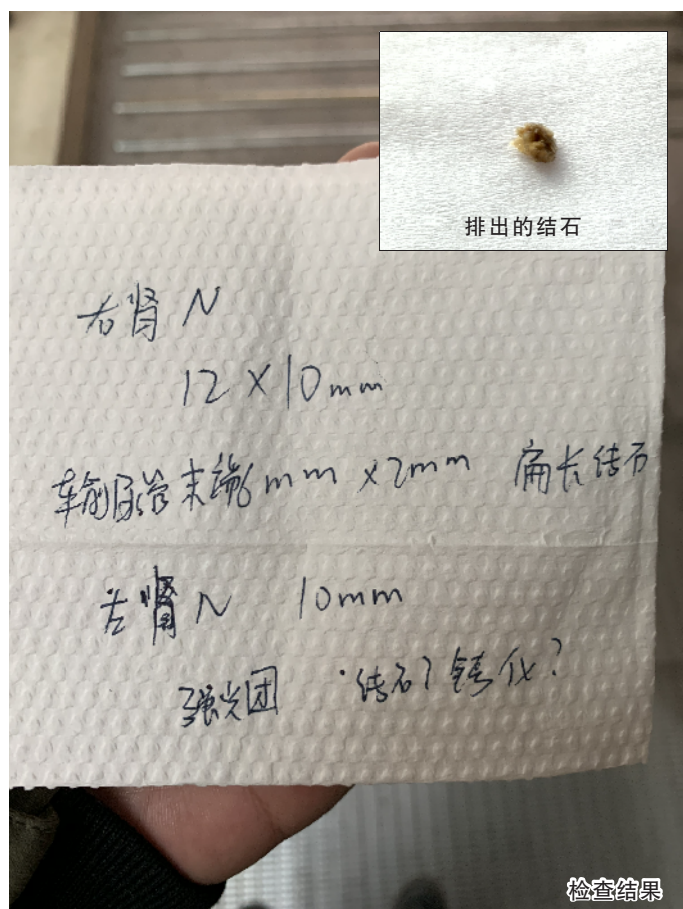 排出的结石
右肾 N
12×10mm
输尿管末端6mm×2mm 扁长结石
左肾 N 10mm
强光团 结石?钙化?
检查结果